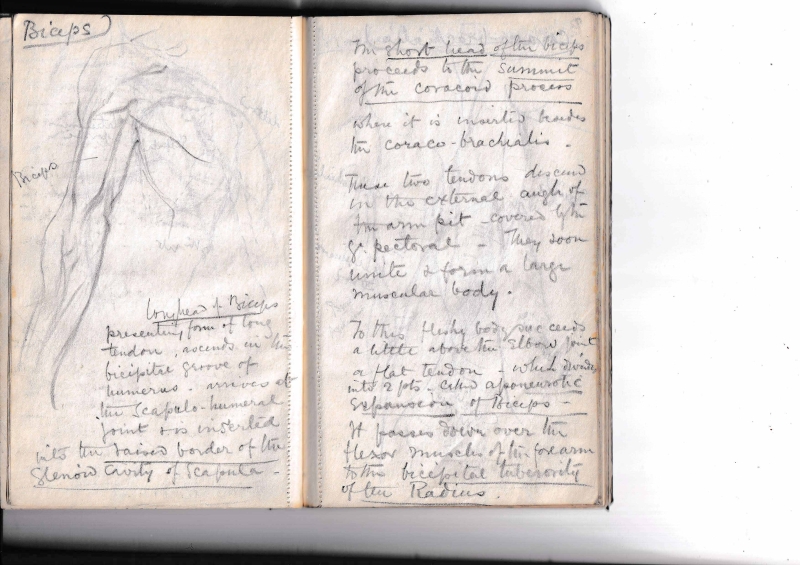 Biceps
Biceps
Long head of Biceps
presenting form of long
tendon, ascends in the
bicipital groove of
humerus. arrives at
the Scapulo-humeral
joint & is inserted
into the raised border of the
Glenoid Cavity of Scapula.
The short head of the biceps
proceeds to the summit
of the coracoid process
where it is inserted besides
the coraco-brachialis.
These two tendons descend
in the external angle of
the arm pit covered by the
gt pectoral - They soon
unite & form a large
muscular body.
To this fleshy body succeeds
a little above the Elbow joint
a flat tendon - which divides
into 2 pts. called aponeurotic
Expansion of Biceps -
It passes down over the
flexor muscles of the forearm
to the bicipital tuberosity
of the Radius.